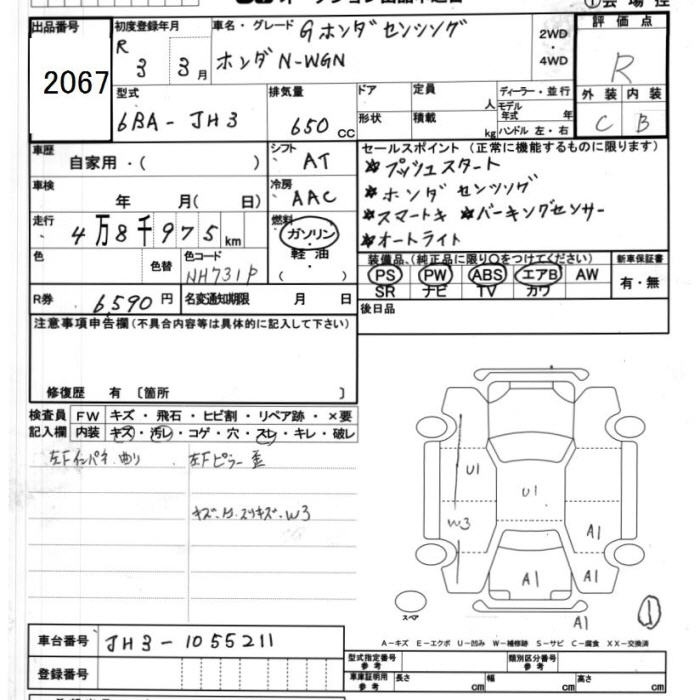 ①会場控
出品番号
2067
初度登録年月
R 3 3 月
車名・グレード
Gホンダセンシング
ホンダN-WGN
2WD
・
4WD
評価点
R
外装 内装
C B
型式
6BA-JH3
排気量
650 CC
ドア
定員
人
形状
積載
kg
ディーラー・並行
モデル年式 年
ハンドル 左・右
車歴
自家用・( )
シフト
AT
車検
年 月( 日)
冷房
AAC
走行
4万8千975km
燃料
ガソリン
・
軽油
色
色替
色コード
NH731P
R券 6,590円
名変通知期限 月 日
セールスポイント(正常に機能するものに限ります)
★プッシュスタート
★ホンダセンシング
★スマートキ ★パーキングセンサー
★オートライト
装備品(純正品に限り○をつけてください)
PS PW ABS エアB AW
SR ナビ TV カワ
新車保証書
有・無
後日品
注意事項申告欄(不具合内容等は具体的に記入して下さい)
修復歴 有 〔箇所 〕
検査員
記入欄
FW キズ・飛石・ヒビ割・リペア跡・×要
内装 キズ・汚レ・コゲ・穴・スレ・キレ・破レ
左Fインパネ曲り
左Fピラー歪
キズ・凹・スリキズ・W3
U1
W3
U1
A1
A1
A1
A1
①
スペア
A-キズ E-エクボ U-凹み W-補修跡 S-サビ C-腐食 XX-交換済
車台番号 JH3-1055211
登録番号
型式指定番号
参考
類別区分番号
参考
車庫証明用
参考
長さ cm
幅 cm
高さ cm